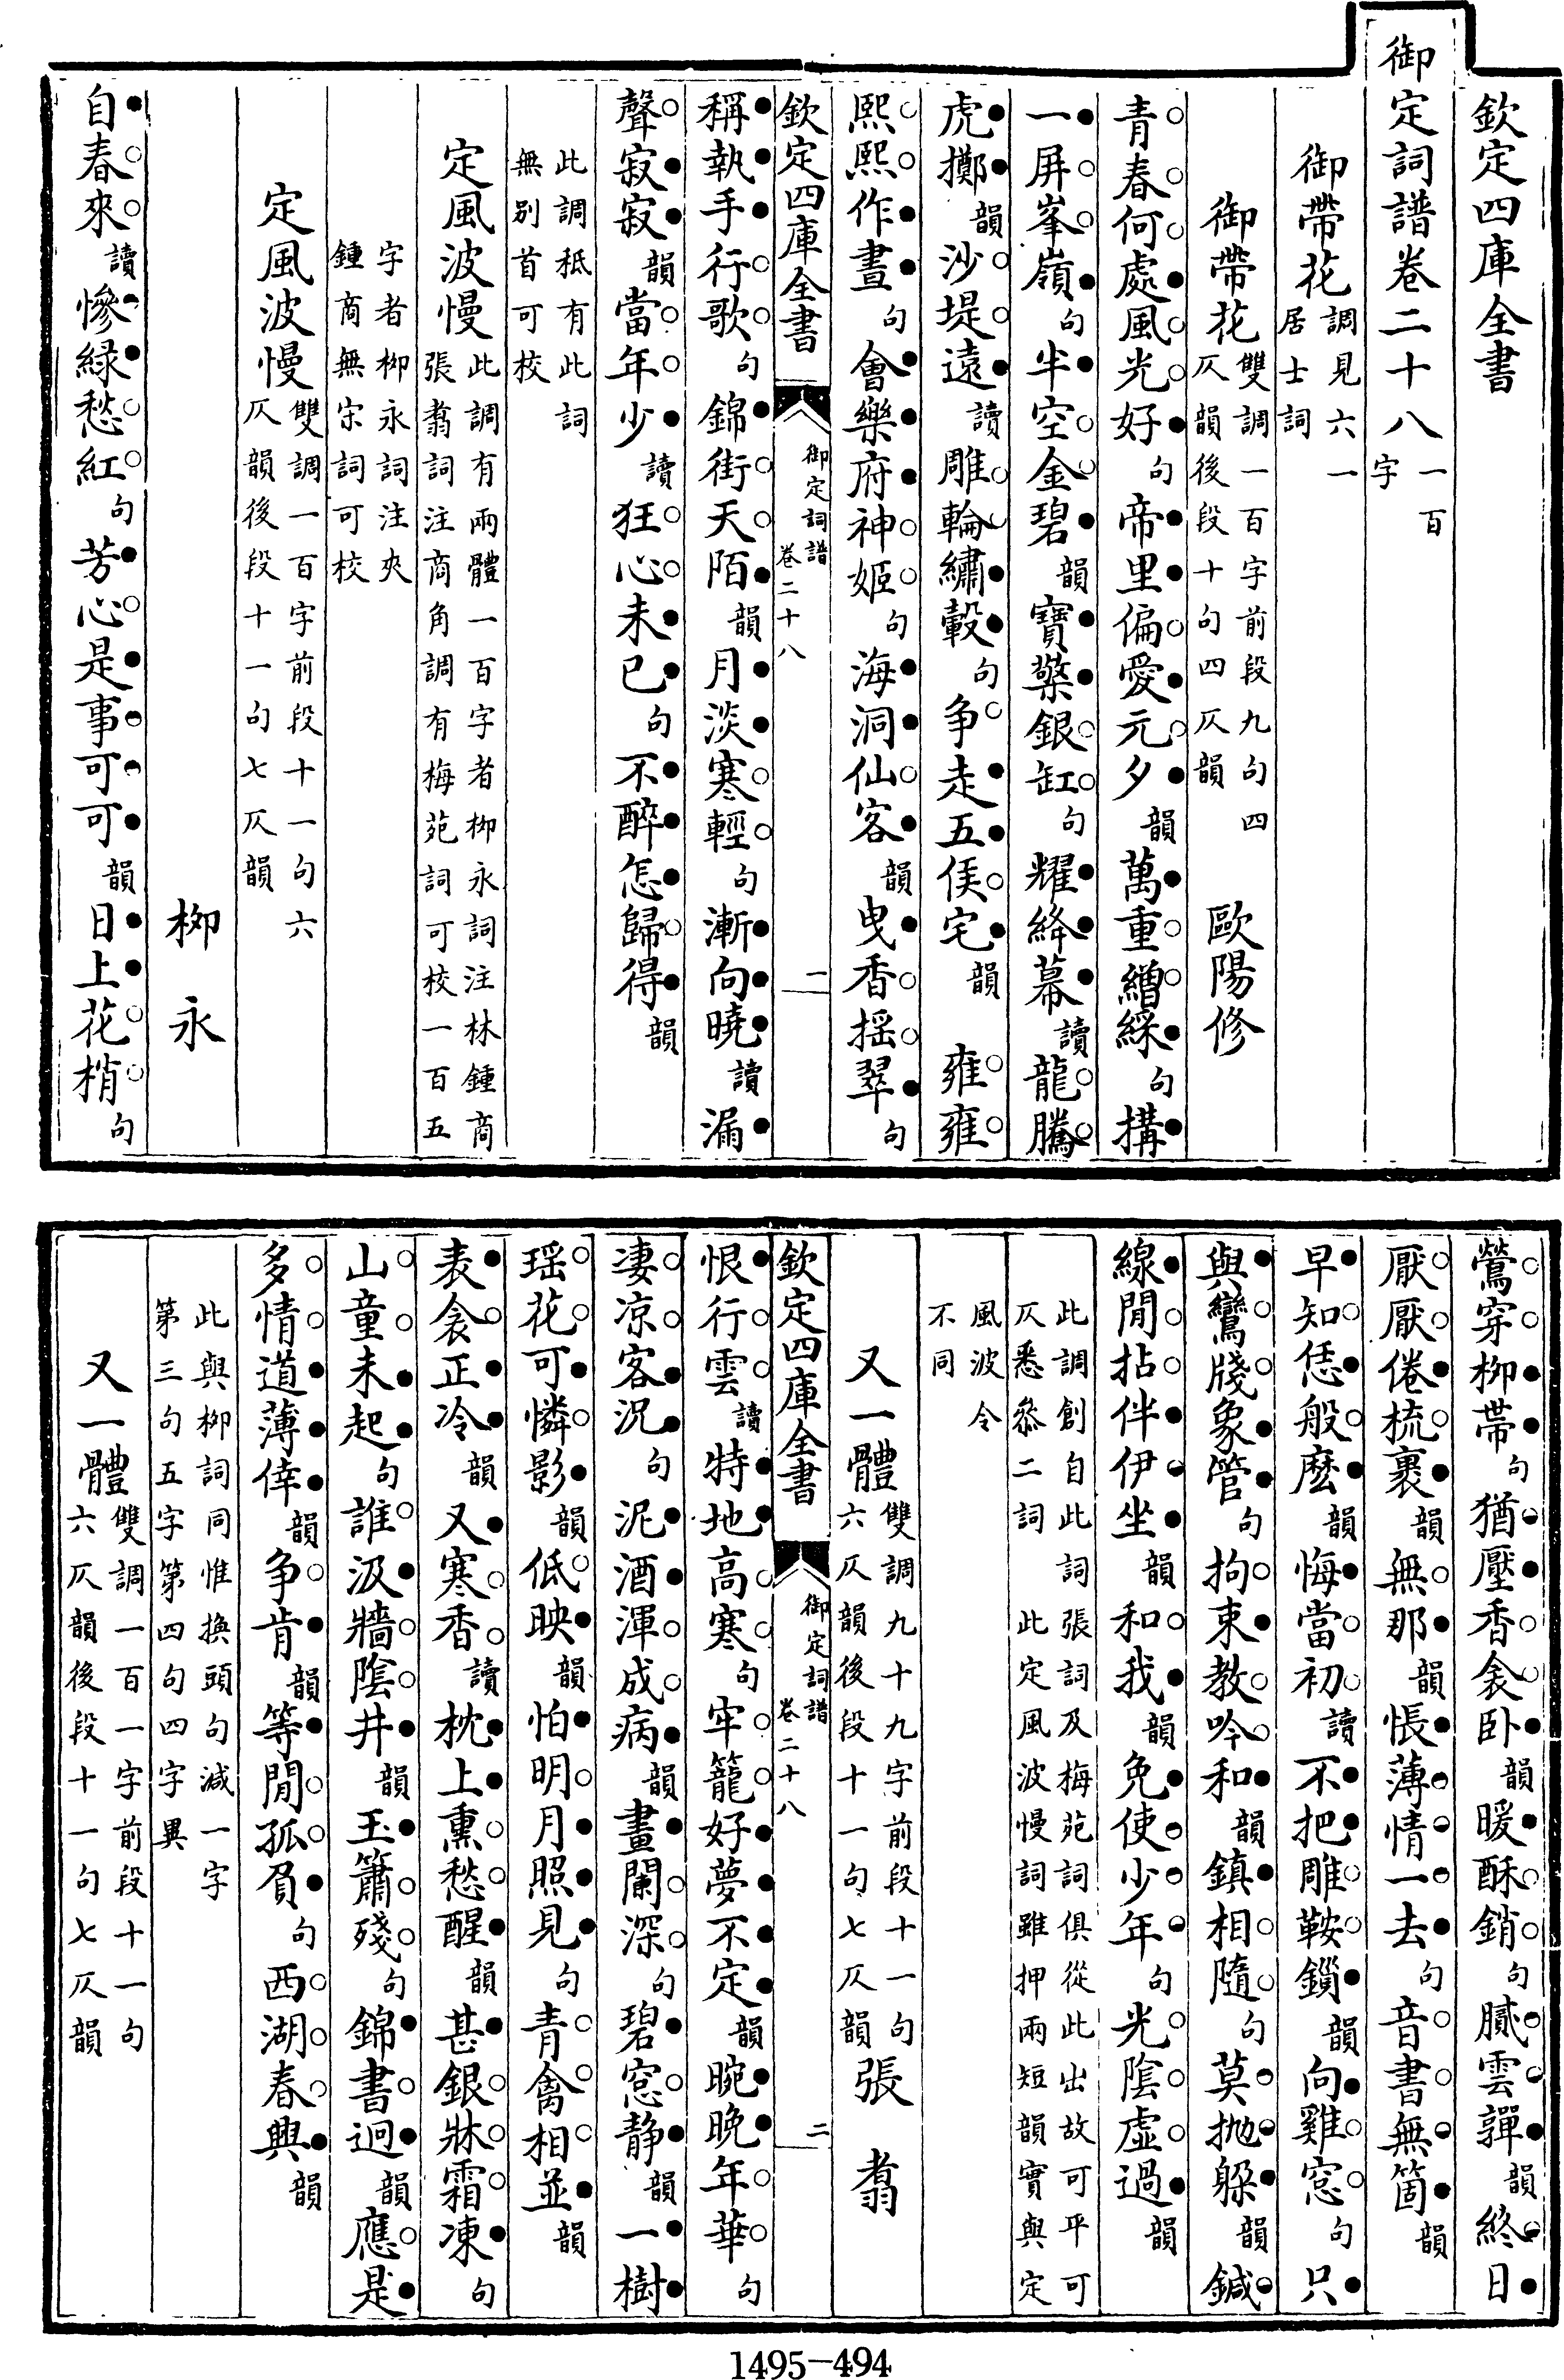 欽定四庫全書
御定詞譜卷二十八 一百一字
御帶花 調見六一居士詞
御帶花 雙調一百字前段九句四仄韻後段十句四仄韻 歐陽修
青春何處風光好句帝里偏愛元夕韻萬重繒綵句搆
一屏峯嶺句半空金碧韻寶檠銀缸句耀絳幕讀龍騰
虎擲韻沙堤遠讀雕輪繡轂句争走五侯宅韻 雍雍
熙熙作晝句會樂府神姬句海洞仙客韻曳香摇翠句
欽定四庫全書 御定詞譜 卷二十八 一
稱執手行歌句錦街天陌韻月淡寒輕句漸向曉讀漏
聲寂寂韻當年少讀狂心未已句不醉怎歸得韻
此調秪有此詞無別首可校
定風波慢 此調有兩體一百字者柳永詞注林鍾商張翥詞注商角調有梅苑詞可校一百五
字者柳永詞注夾鍾商無宋詞可校
定風波慢 雙調一百字前段十一句六仄韻後段十一句七仄韻
柳永
自春來讀慘緑愁紅句芳心是事可可韻日上花梢句
鶯穿柳帶句猶壓香衾卧韻暖酥銷句膩雲嚲韻終日
厭厭倦梳裹韻無那韻悵薄情一去句音書無箇韻
早知恁般麽韻悔當初讀不把雕鞍鎖韻向雞窓句只
與鸞牋象管句拘束教吟和韻鎮相隨句莫抛躲韻鍼
線閒拈伴伊坐韻和我韻免使少年句光陰虚過韻
此調創自此詞張詞及梅苑詞俱從此出故可平可仄悉叅二詞 此定風波慢詞雖押兩短韻實與定
風波令不同
又一體 雙調九十九字前段十一句六仄韻後段十一句七仄韻 張翥
欽定四庫全書 御定詞譜 卷二十八 二
恨行雲讀特地高寒句牢籠好夢不定韻晼晚年華句
凄凉客況句泥酒渾成病韻畫闌深句碧窓静韻一樹
瑶花可憐影韻低映韻怕明月照見句青禽相並韻
表衾正冷韻又寒香讀枕上熏愁醒韻甚銀牀霜凍句
山童未起句誰汲牆陰井韻玉簫殘句錦書迥韻應是
多情道薄倖韻争肯韻等閒孤負句西湖春興韻
此與柳詞同惟換頭句減一字第三句五字第四句四字異
又一體 雙調一百一字前段十一句六仄韻後段十一句七仄韻
1495-494